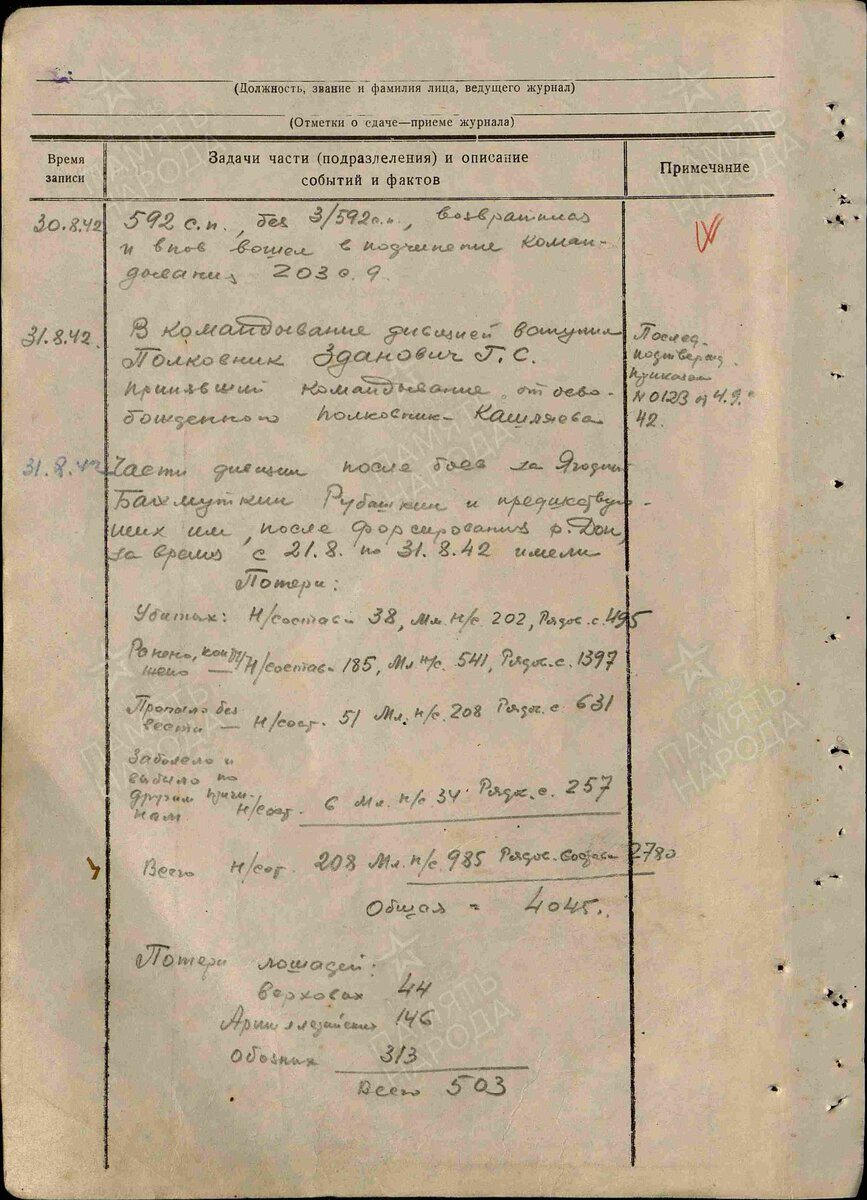 (Должность, звание и фамилия лица, ведущего журнал)
(Отметки о сдаче—приеме журнала)
Время записи
Задачи части (подразделения) и описание событий и фактов
Примечание
30.8.42 592 с.п., без 3/592 с.п., возвратился
и внов вошел в подчинение коман-
дования 203 с.д.
31.8.42. В командывание дивизией вступил
Полковник Зданович Г.С.
принявший командывание от осво-
божденного полковника Кашляева
Послед.
подтвержд.
приказом
N 0123 от 4.9.
42.
31.8.42 Части дивизии после боев за Ягодный
Бахмуткин Рубашкин и предшествую-
щих им, после форсирования р. Дон,
за время с 21.8. по 31.8.42 имели
Потери:
Убитых: Н/состава 38, Мл. н/с 202, Рядов. с. 495
Ранено, конту-
жено — Н/состава 185, Мл н/с. 541, Рядов. с. 1397
Пропало без
вести — Н/сост. 51 Мл. н/с. 208 Рядов. с. 631
Заболело и
выбыло по
другим причи-
нам Н/сост. 6 Мл. н/с 34 Рядов. с. 257
Всего Н/сост. 208 Мл. н/с. 985 Рядов. состава 2780
Общая = 4045.
Потери лошадей:
верховых 44
Артиллерийских 146
Обозных 313
Всего 503
ПАМЯТЬ
НАРОДА
ПАМЯТЬ
НАРОДА
ПАМЯТЬ
НАРОДА